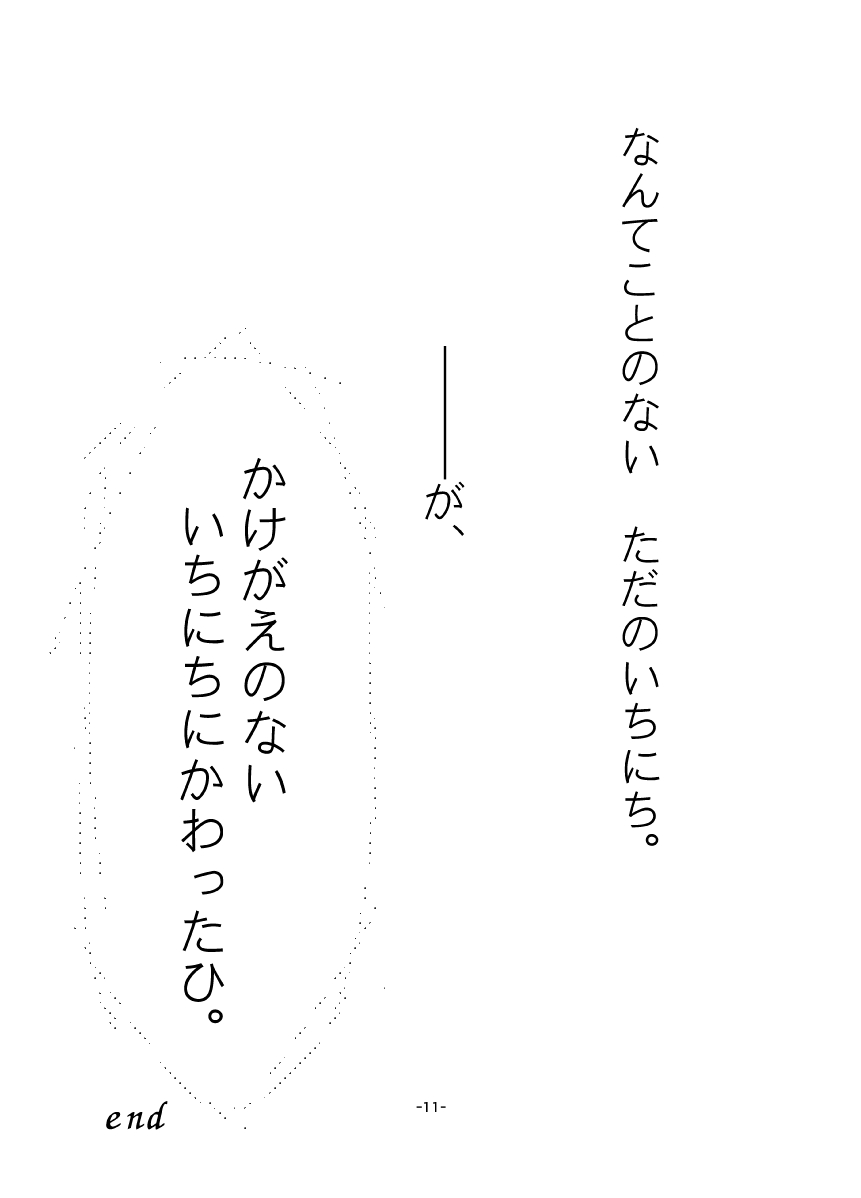 なんてことのない　ただのいちにち。
――が、
かけがえのない
いちにちにかわったひ。
end
-11-